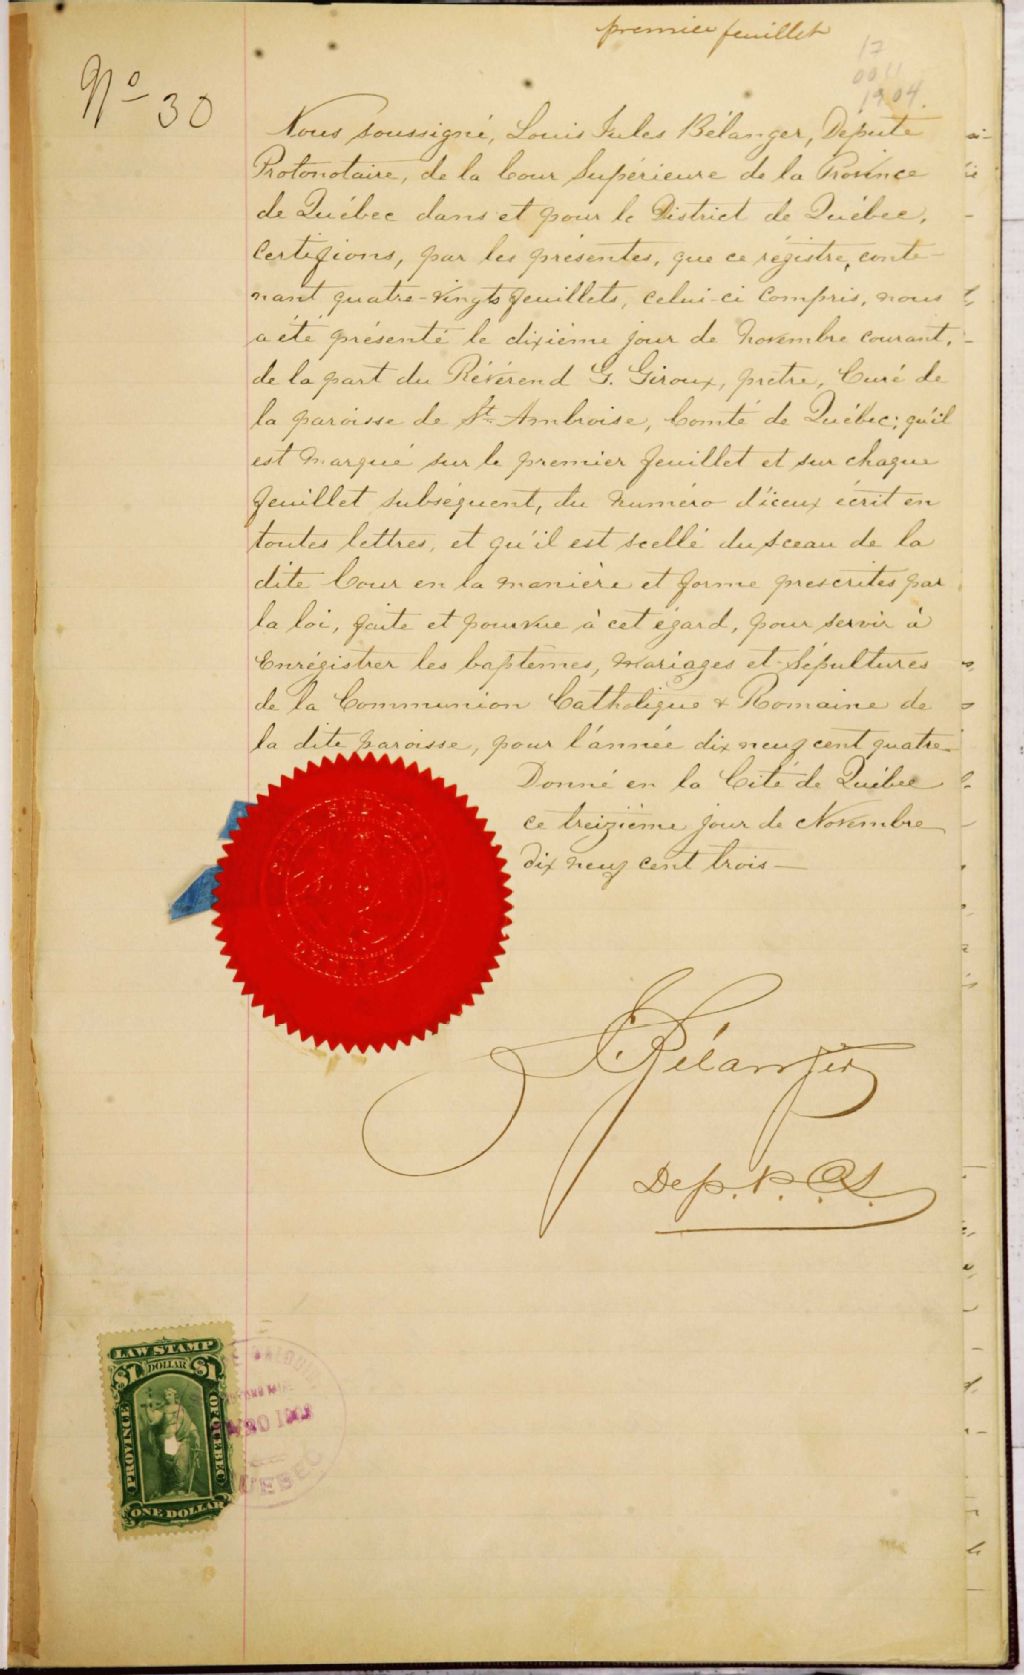 premier feuillet
No 30
17
0011
1904.
Nous soussigné, Louis Jules Bélanger, Député
Protonotaire, de la Cour Supérieure de la Province
de Québec dans et pour le District de Québec,
certifions, par les présentes, que ce régistre, conte-
nant quatre-vingts feuillets, celui-ci compris, nous
a été présenté le dixième jour de Novembre courant,
de la part du Révérend G. Giroux, prêtre, Curé de
la paroisse de St-Ambroise, Comté de Québec; qu'il
est marqué sur le premier feuillet et sur chaque
feuillet subséquent, du numéro d'iceux écrit en
toutes lettres, et qu'il est scellé du sceau de la
dite Cour en la manière et forme prescrites par
la loi, faite et pourvue à cet égard, pour servir à
Enrégistrer les baptêmes, mariages et Sépultures
de la Communion Catholique & Romaine de
la dite paroisse, pour l'année dix neuf cent quatre-
Donné en la Cité de Québec
ce treizième jour de Novembre
dix neuf cent trois—
Bélanger
Dep. P. C.S.
LAW STAMP
$1 DOLLAR $1
PROVINCE OF QUEBEC
ONE DOLLAR
QUEBEC